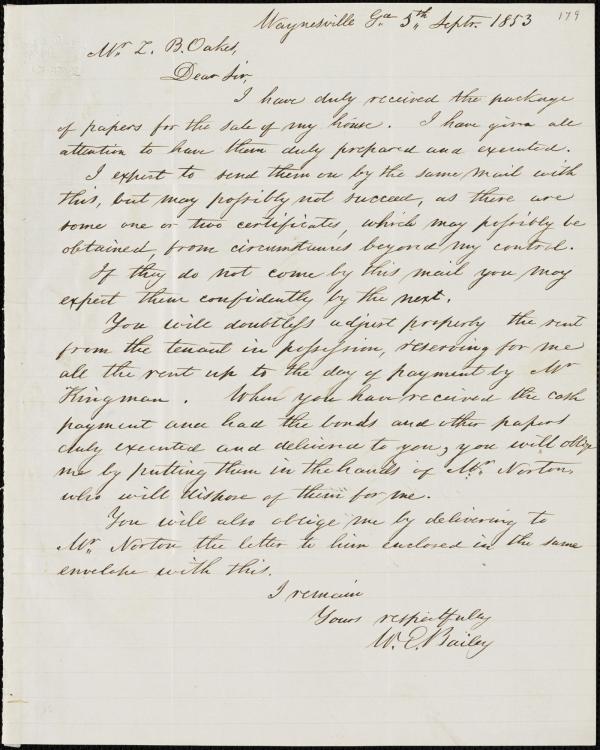 179
Waynesville Ga. 5th Septr. 1853
Mr. Z. B. Oakes,
Dear Sir,
I have duly received the package
of papers for the sale of my house. I have given all
attention to have them duly prepared and executed.
I expect to send them on by the same mail with
this, but may possibly not succeed, as there are
some one or two certificates, which may possibly be
obtained, from circumstances beyond my control.
If they do not come by this mail you may
expect them confidently by the next.
You will doubtless adjust properly the rent
from the tenant in possession, reserving for me
all the rent up to the day of payment by Mr
Kingman. When you have received the cash
payment and had the bonds and other papers
duly executed and delivered to you, you will oblige
me by putting them in the hands of Mr. Norton,
who will dispose of them for me.
You will also oblige me by delivering to
Mr. Norton the letter to him enclosed in the same
envelope with this.
I remain
Yours respectfully
W. E. Bailey